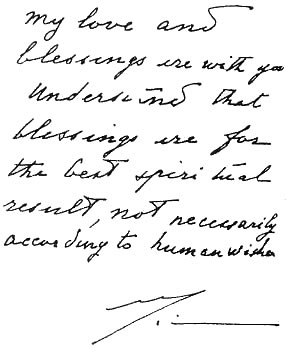 my love and
blessings are with you
Understand that
blessings are for
the best spiritual
result, not necessarily
according to human wishes